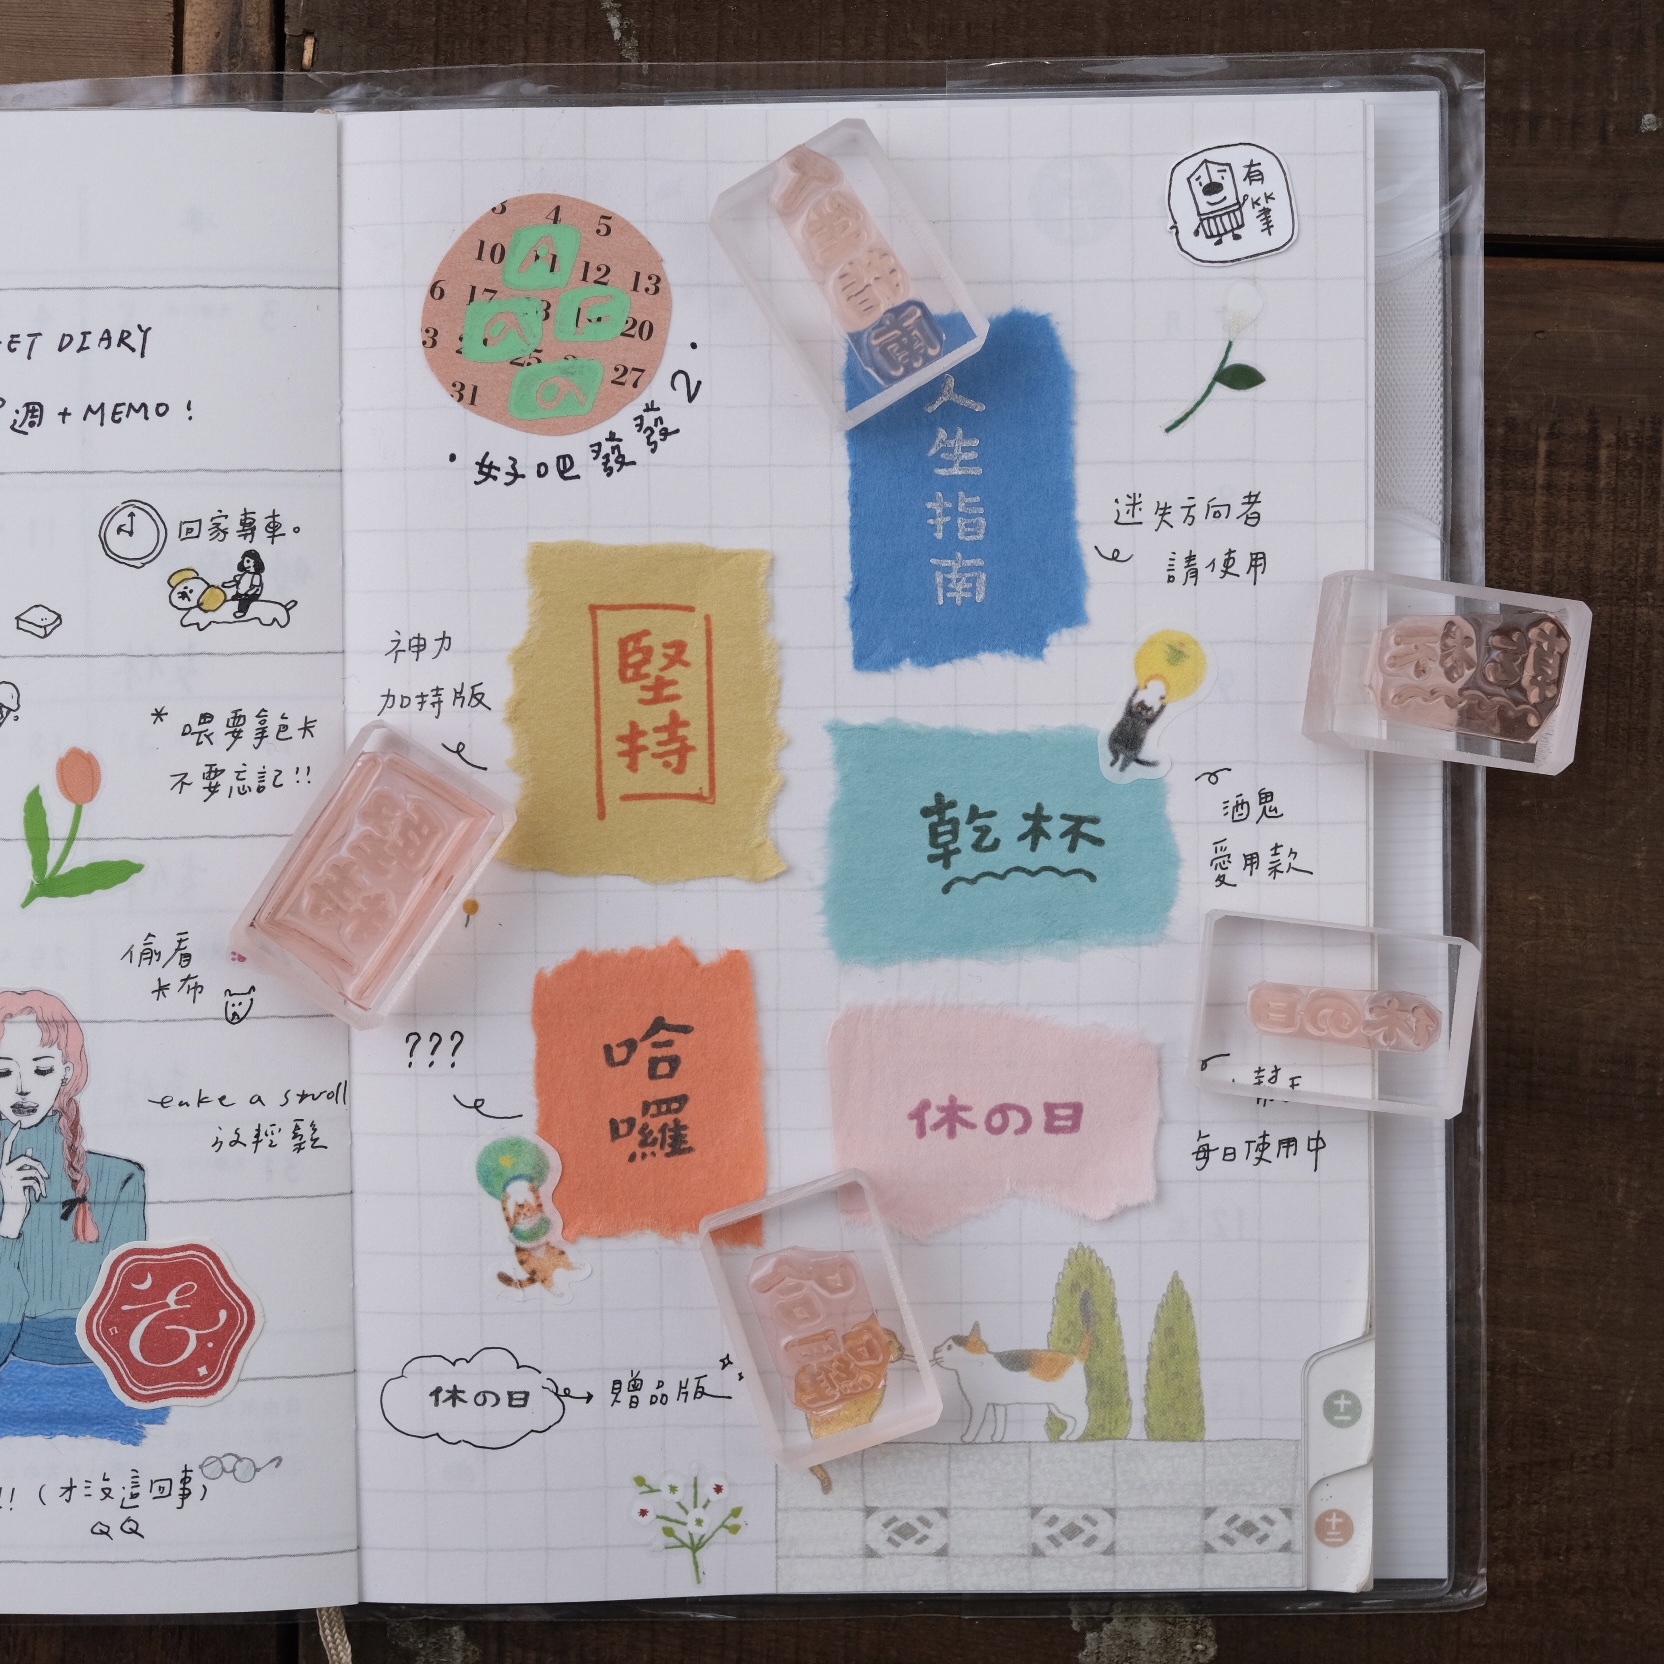 ET DIARY
週 + MEMO !
回家專車。
* 喂要拿色卡
不要忘記!!
偷看
卡布
take a stroll
放輕鬆
!! (才沒這回事)
QQ
3 4 5
10 11 12 13
6 17 18 19 20
3 25 27
31
好吧發發2
有
KK
筆
人生指南
迷失方向者
請使用
神力
加持版
堅持
乾杯
酒鬼
愛用款
???
哈囉
休の日
每日使用中
休の日
贈品版
十一
十二